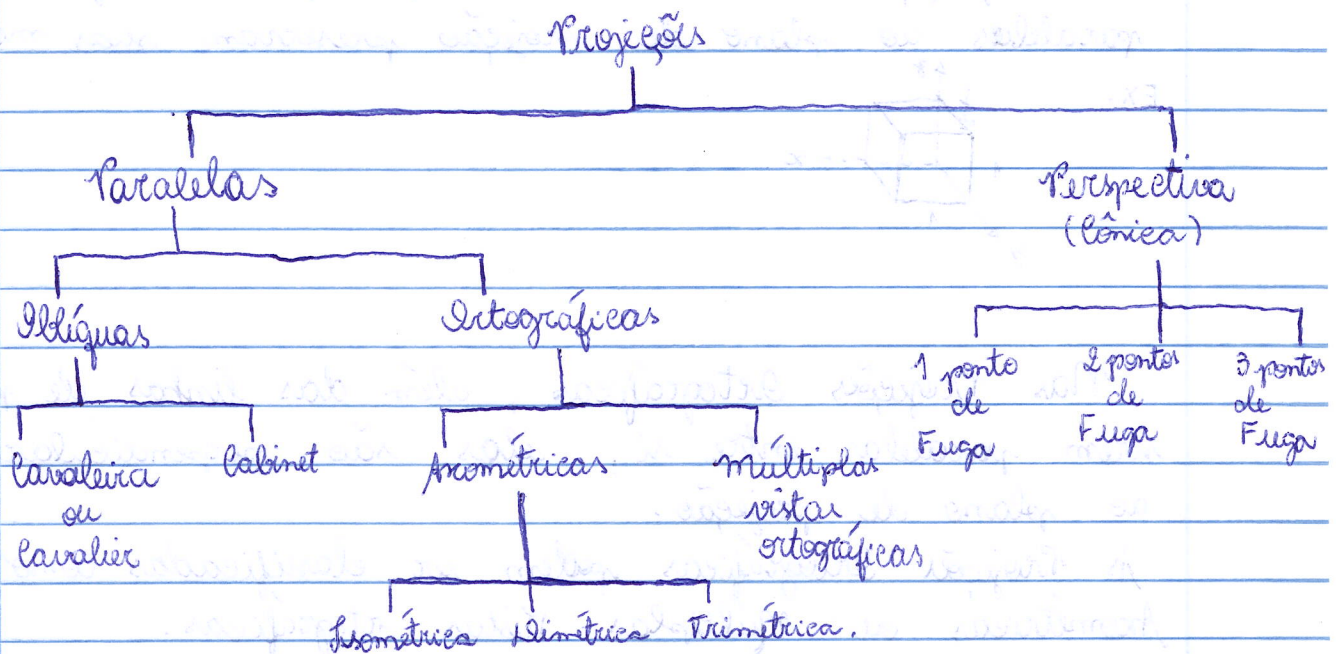 Projeções
Paralelas
Perspectiva
(Cônica)
Oblíquas
Ortográficas
1 ponto
de
Fuga
2 pontos
de
Fuga
3 pontos
de
Fuga
Cavaleira
ou
Cavalier
Cabinet
Axométricas
Múltiplas
vistas
ortográficas
Isométrica Dimétrica Trimétrica.